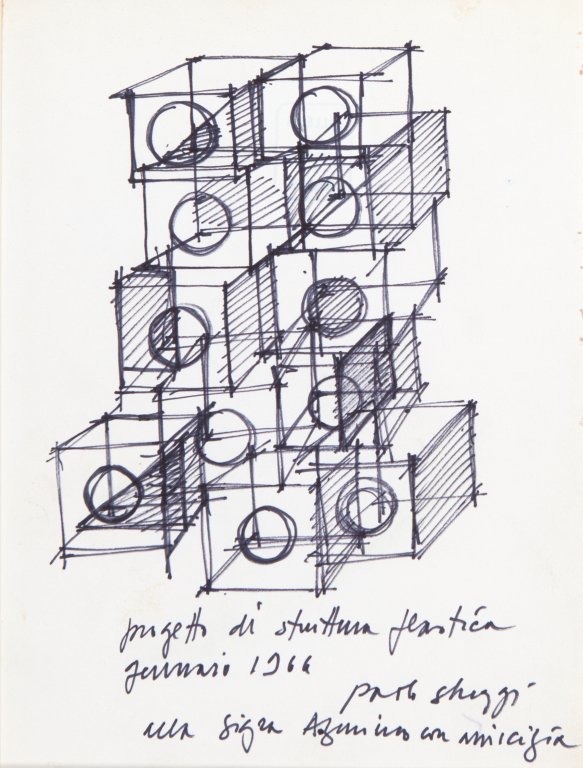 progetto di struttura plastica
gennaio 1966
paolo scheggi
alla Sigra con amicizia